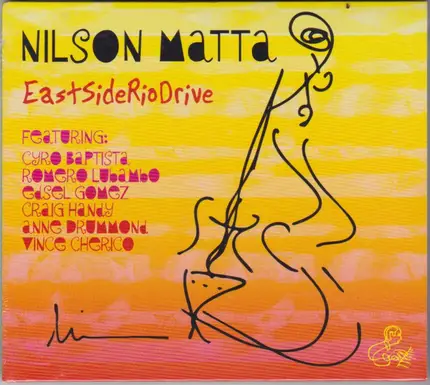 NILSON MATTA
EastSideRioDrive
FEATURING:
CYRO BAPTISTA
ROMERO LUBAMBO
EDSEL GOMEZ
CRAIG HANDY
ANNE DRUMMOND
VINCE CHERICO